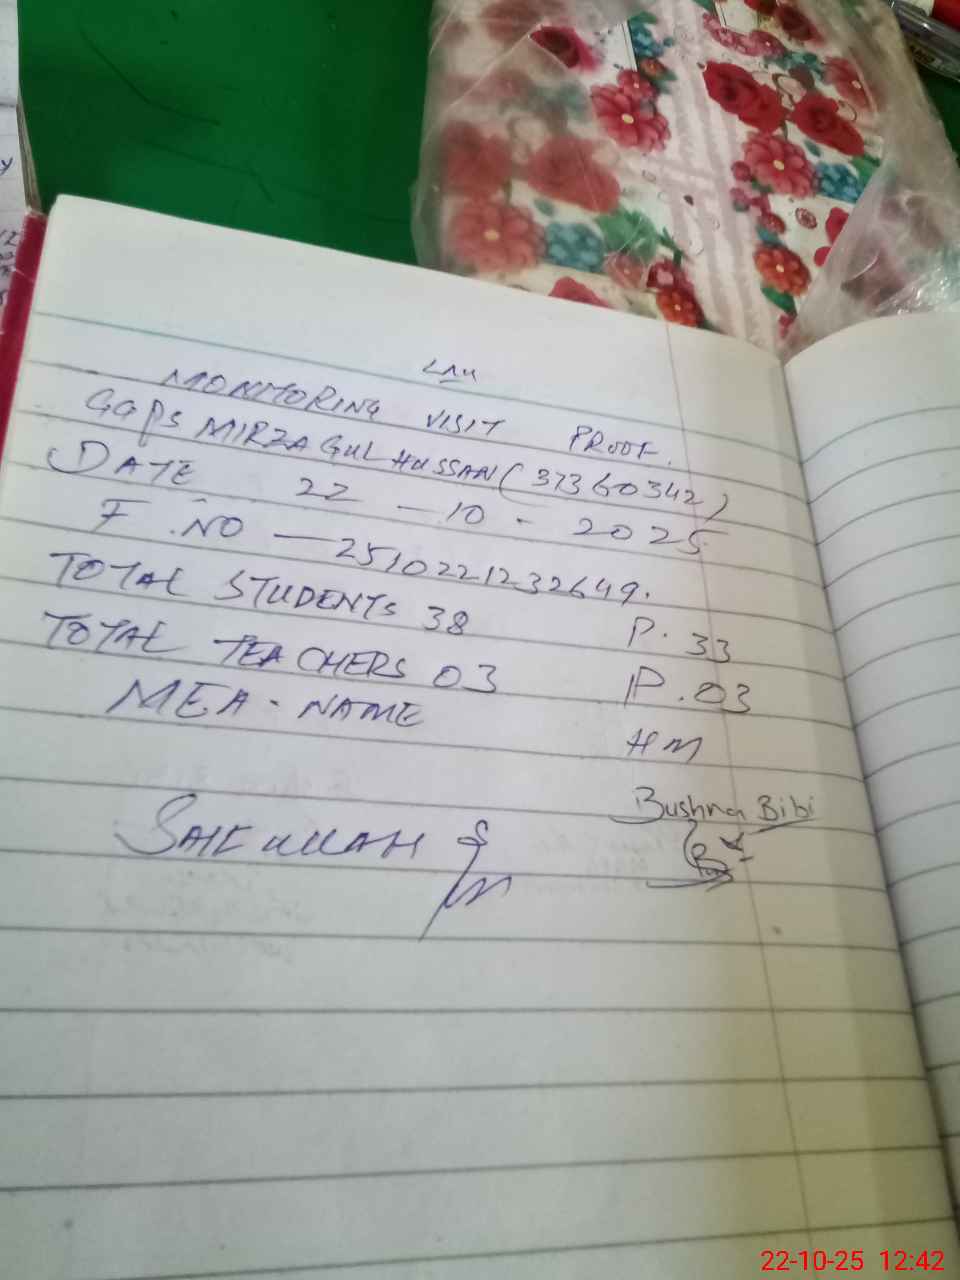 MONITORING VISIT PROOF.
GGPS MIRZA GUL HUSSAN (37360342)
DATE 22 - 10 - 2025
F.NO — 2510221232649.
TOTAL STUDENTS 38 P. 33
TOTAL TEACHERS 03 P. 03
MEA. NAME HM
SAIF ULLAH Bushra Bibi
22-10-25 12:42